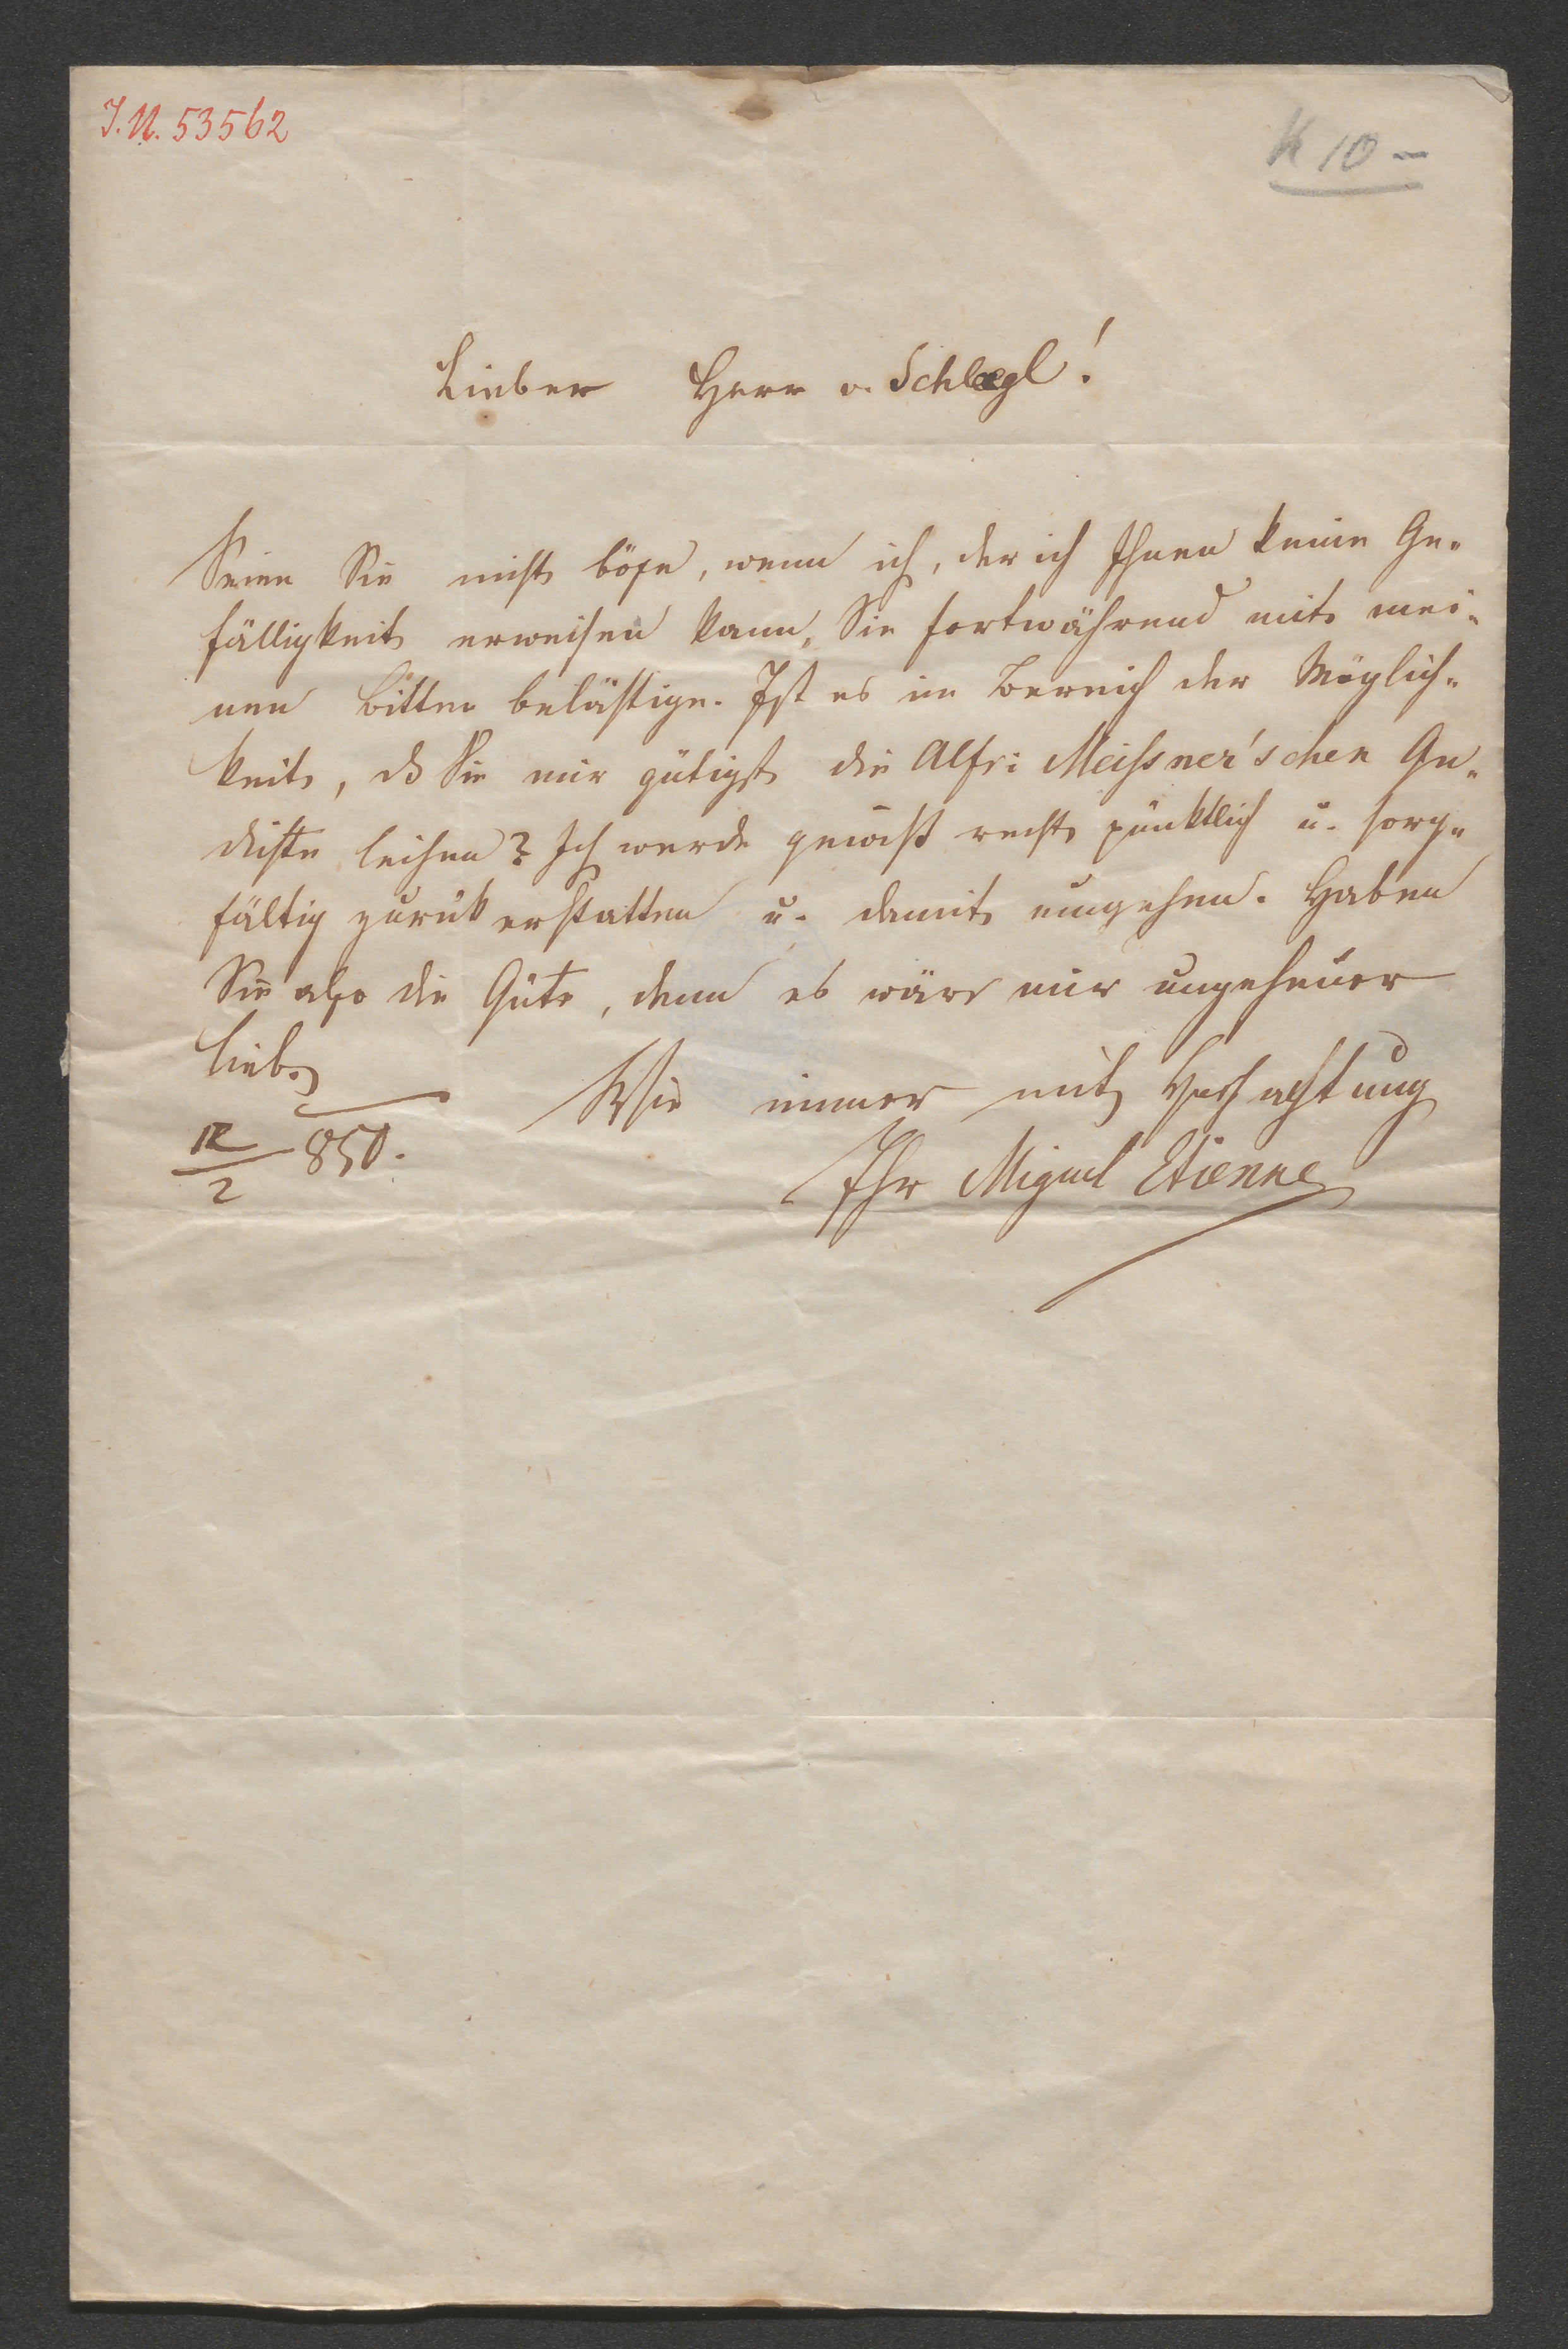 I. N. 53562
K 10 –
Lieber Herr v. Schlægl!
Seien Sie nicht böse, wenn ich, der ich Ihnen keine Ge-
fälligkeit erweisen kann, Sie fortwährend mit mei-
nen Bitten belästige. Ist es im Bereich der Möglich-
keit, dß Sie mir gütigst die Alfr: Meissner'schen Ge-
dichte leihen? Ich werde gewiß recht pünktlich u. sorg-
fältig zurük erstatten u. damit umgehen. Haben
Sie also die Güte, denn es wäre mir ungeheuer
lieb.
Wie immer mit Hochachtung
12/2 850.
Ihr Miguel Etienne